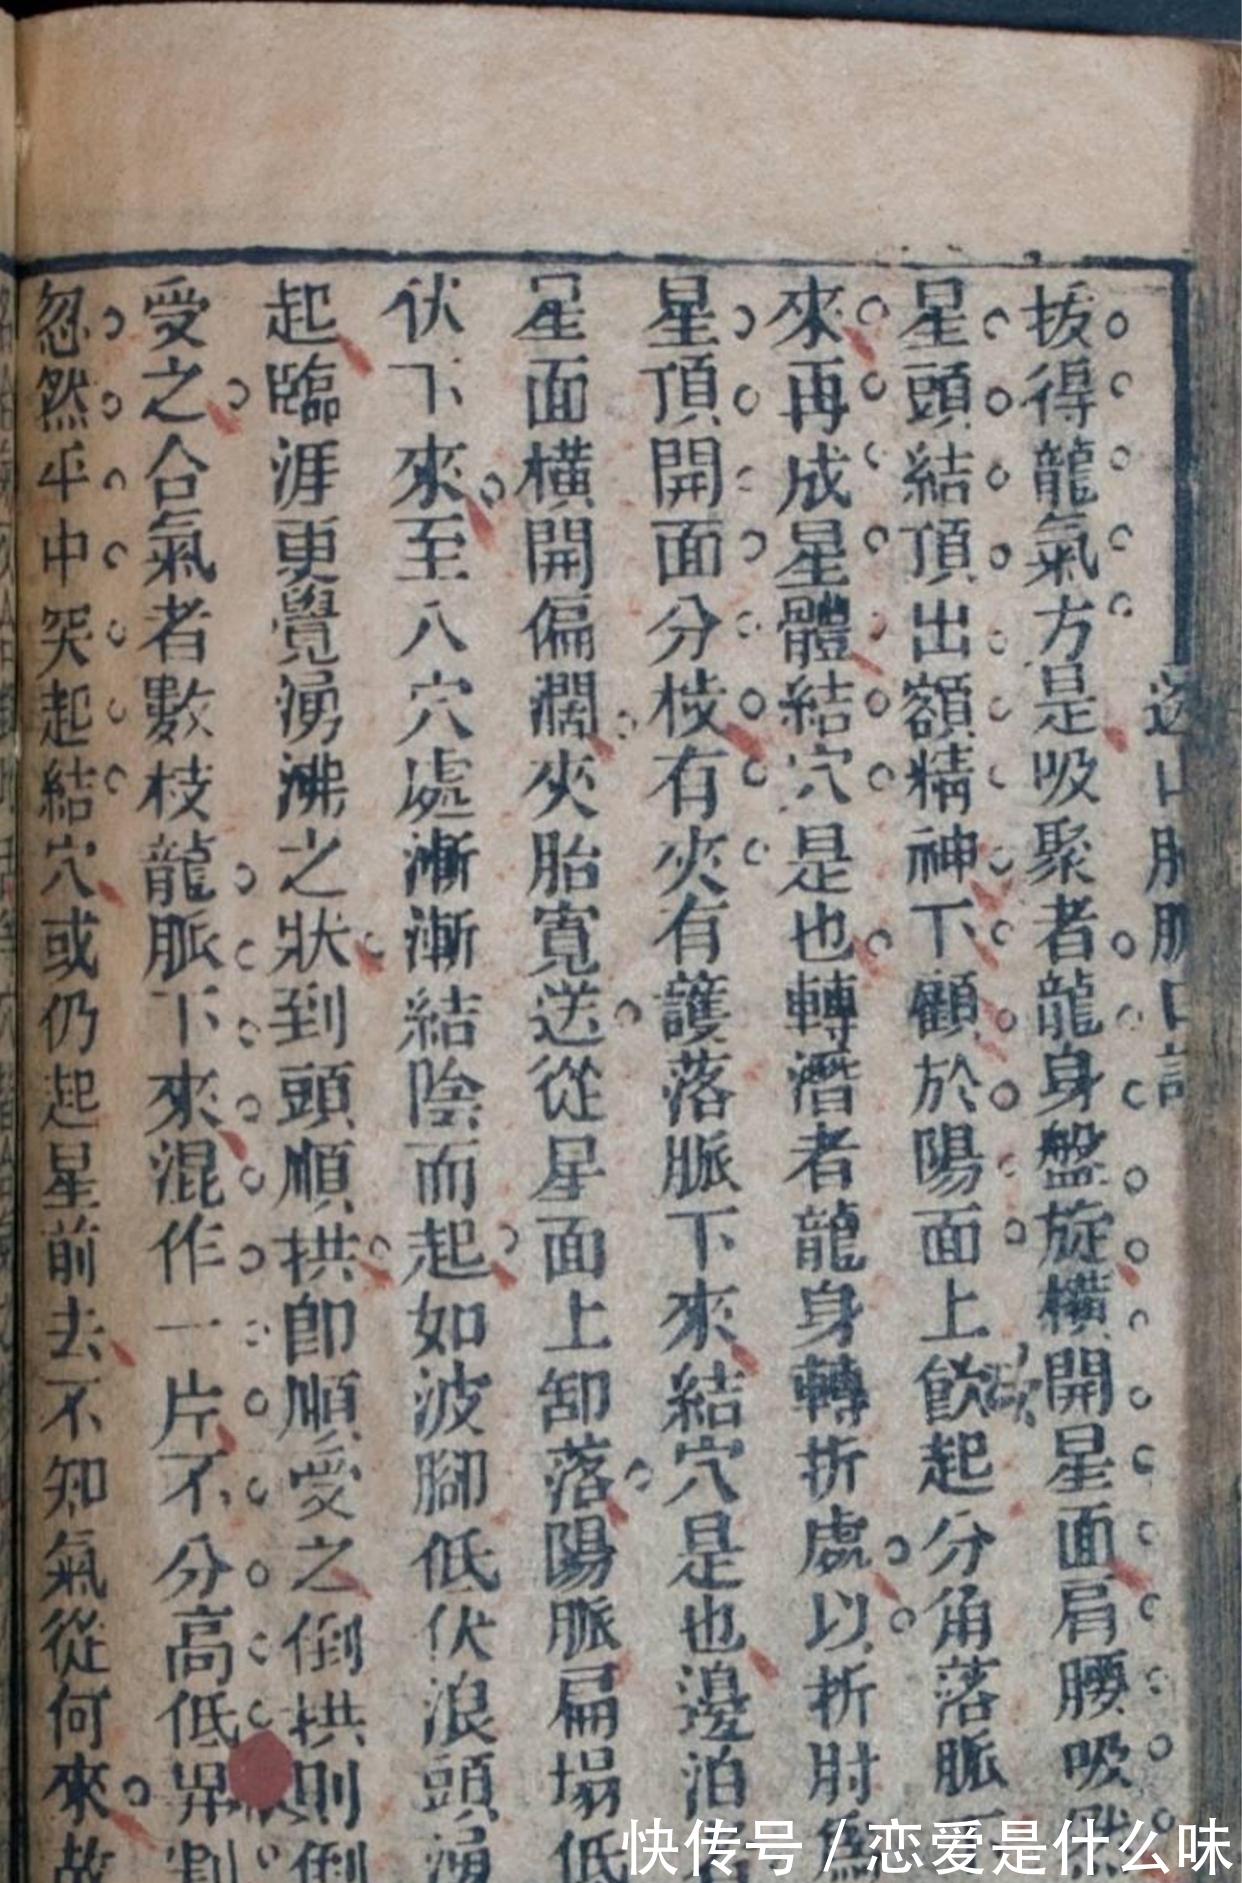 拔得龍氣方是吸聚者龍身盤旋橫開星面肩腰吸
星頭結頂出額精神下顧於陽面上飲起分角落脈
來再成星體結穴是也轉潛者龍身轉折處以折肘為
星頂開面分枝有夾有護落脈下來結穴是也邊泊
星面橫開偏濶夾胎寬送從星面上卸落陽脈扁塌低
伏下來至八穴處漸漸結陰而起如波腳低伏浪頭湧
起臨涯更覺湧沸之狀到頭順拱即順受之倒拱則倒
受之合氣者數枝龍脈下來混作一片不分高低界割
忽然平中突起結穴或仍起星前去不知氣從何來故
快传号/恋爱是什么味